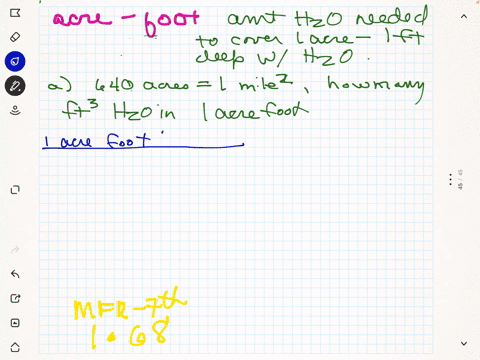 acre - foot amt H2O needed
to cover 1 acre - 1 ft
deep w/ H2O.
a) 640 acres = 1 mile², how many
ft³ H2O in 1 acre foot
1 acre foot
MFR - 7th
1.68
45 / 45